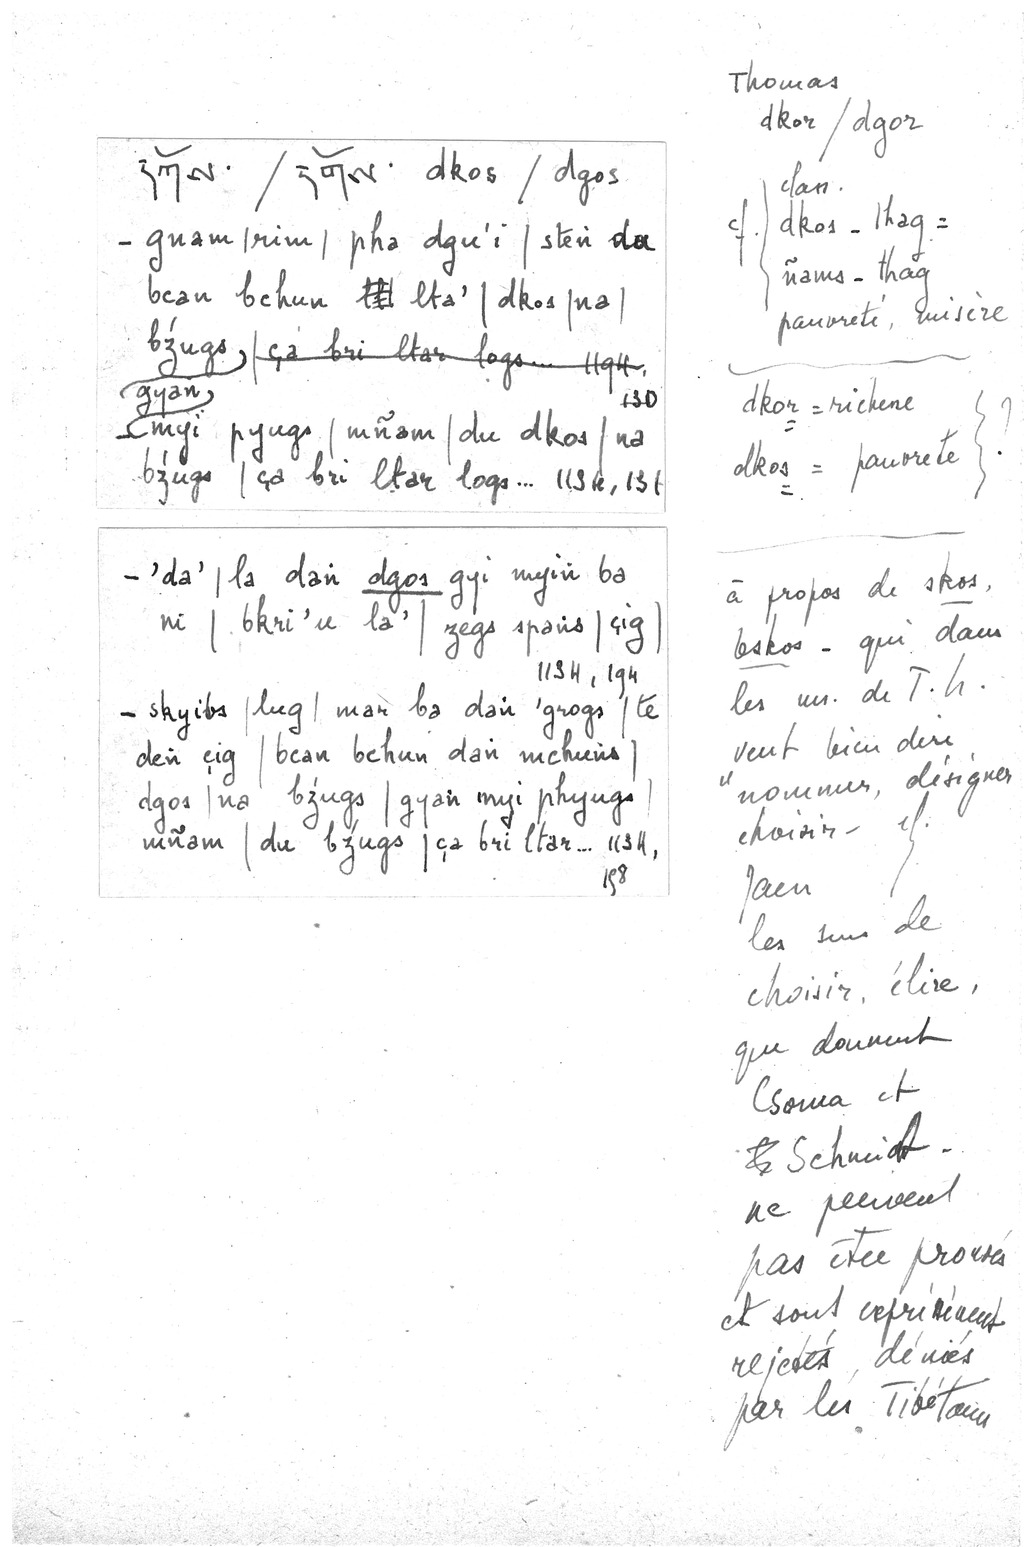 དཀོས་ / དགོས་ dkos / dgos
- gnam |rim| pha dgu'i | steṅ du
bcan bchun lta' | dkos |na|
bźugs, | ça bri ltar logs... 1194,
130
gyaṅ
- myï pyugs | mñam | du dkos | na
bźugs | ça bri ltar logs... 1134, 131
- 'da' | la daṅ dgos gyi myiṅ ba
ni | bkri'u la' | zegs spaṅs | çig |
1134, 194
- skyibs |lug| mar ba daṅ 'grogs | te
deṅ çig | bcan bchun daṅ mchuṅs |
dgos | na bźugs | gyaṅ myi phyugs |
mñam | du bźugs | ça bri ltar... 1134,
198
Thomas
dkor / dgor
clan.
cf. dkos - thag =
ñams - thag
pauvreté, misère
dkor = richesse
dkos = pauvreté ?
à propos de skos,
bskos - qui dans
les ms. de T.h.
veut bien dire
"nommer, désigner
choisir - cf.
Jaen
les sens de
choisir, élire,
que donnent
Csoma et
Schmidt -
ne peuvent
pas être prouvés
et sont expressément
rejetés, déniés
par les Tibétains